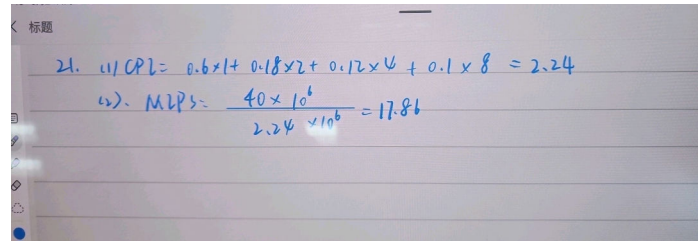 标题
21. (1) CPI= 0.6×1+ 0.18×2+ 0.12×4 + 0.1×8 = 2.24
(2). MIPS= 40×10⁶ / 2.24×10⁶ = 17.86